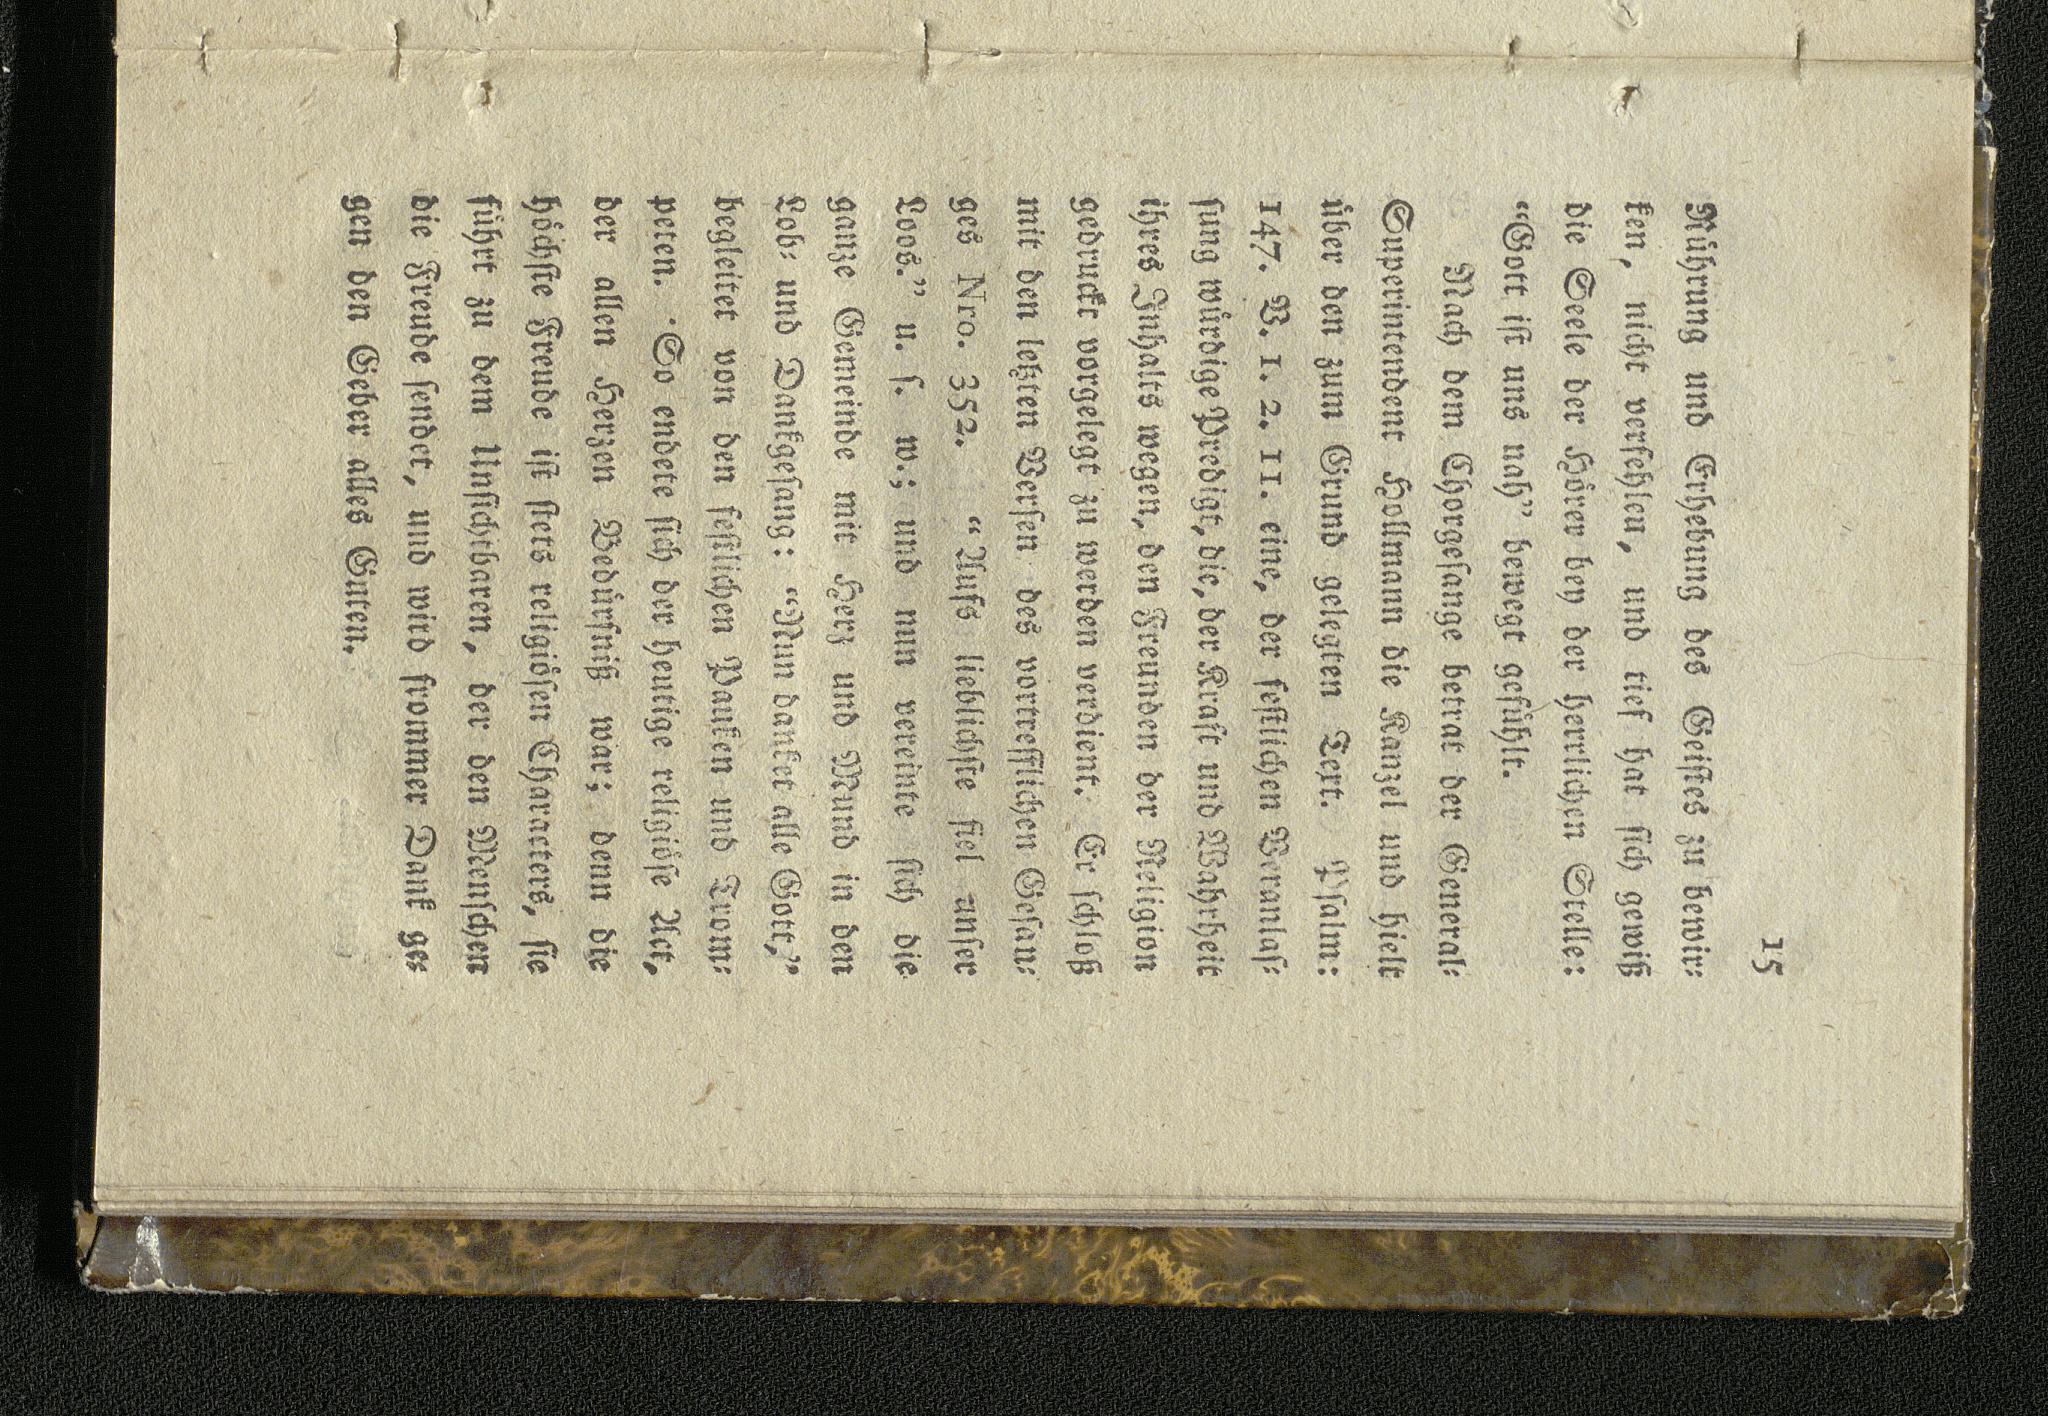 15
Rührung und Erhebung des Geistes zu bewir⸗
ken, nicht verfehlen, und tief hat sich gewiß
die Seele der Hörer bey der herrlichen Stelle:
“Gott ist uns nah” bewegt gefühlt.
Nach dem Chorgesange betrat der General⸗
Superintendent Hollmann die Kanzel und hielt
über den zum Grund gelegten Text. Psalm:
147. V. 1. 2. 11. eine, der festlichen Veranlas⸗
sung würdige Predigt, die, der Kraft und Wahrheit
ihres Inhalts wegen, den Freunden der Religion
gedruckt vorgelegt zu werden verdient. Er schloß
mit den letzten Versen des vortrefflichen Gesan⸗
ges Nro. 352. “Aufs lieblichste fiel unser
Loos.” u. s. w.; und nun vereinte sich die
ganze Gemeinde mit Herz und Mund in den
Lob⸗ und Dankgesang: “Nun danket alle Gott,”
begleitet von den festlichen Pauken und Trom⸗
peten. So endete sich der heutige religiöse Act,
der allen Herzen Bedürfniß war; denn die
höchste Freude ist stets religiösen Characters, sie
führt zu dem Unsichtbaren, der den Menschen
die Freude sendet, und wird frommer Dank ge⸗
gen den Geber alles Guten.